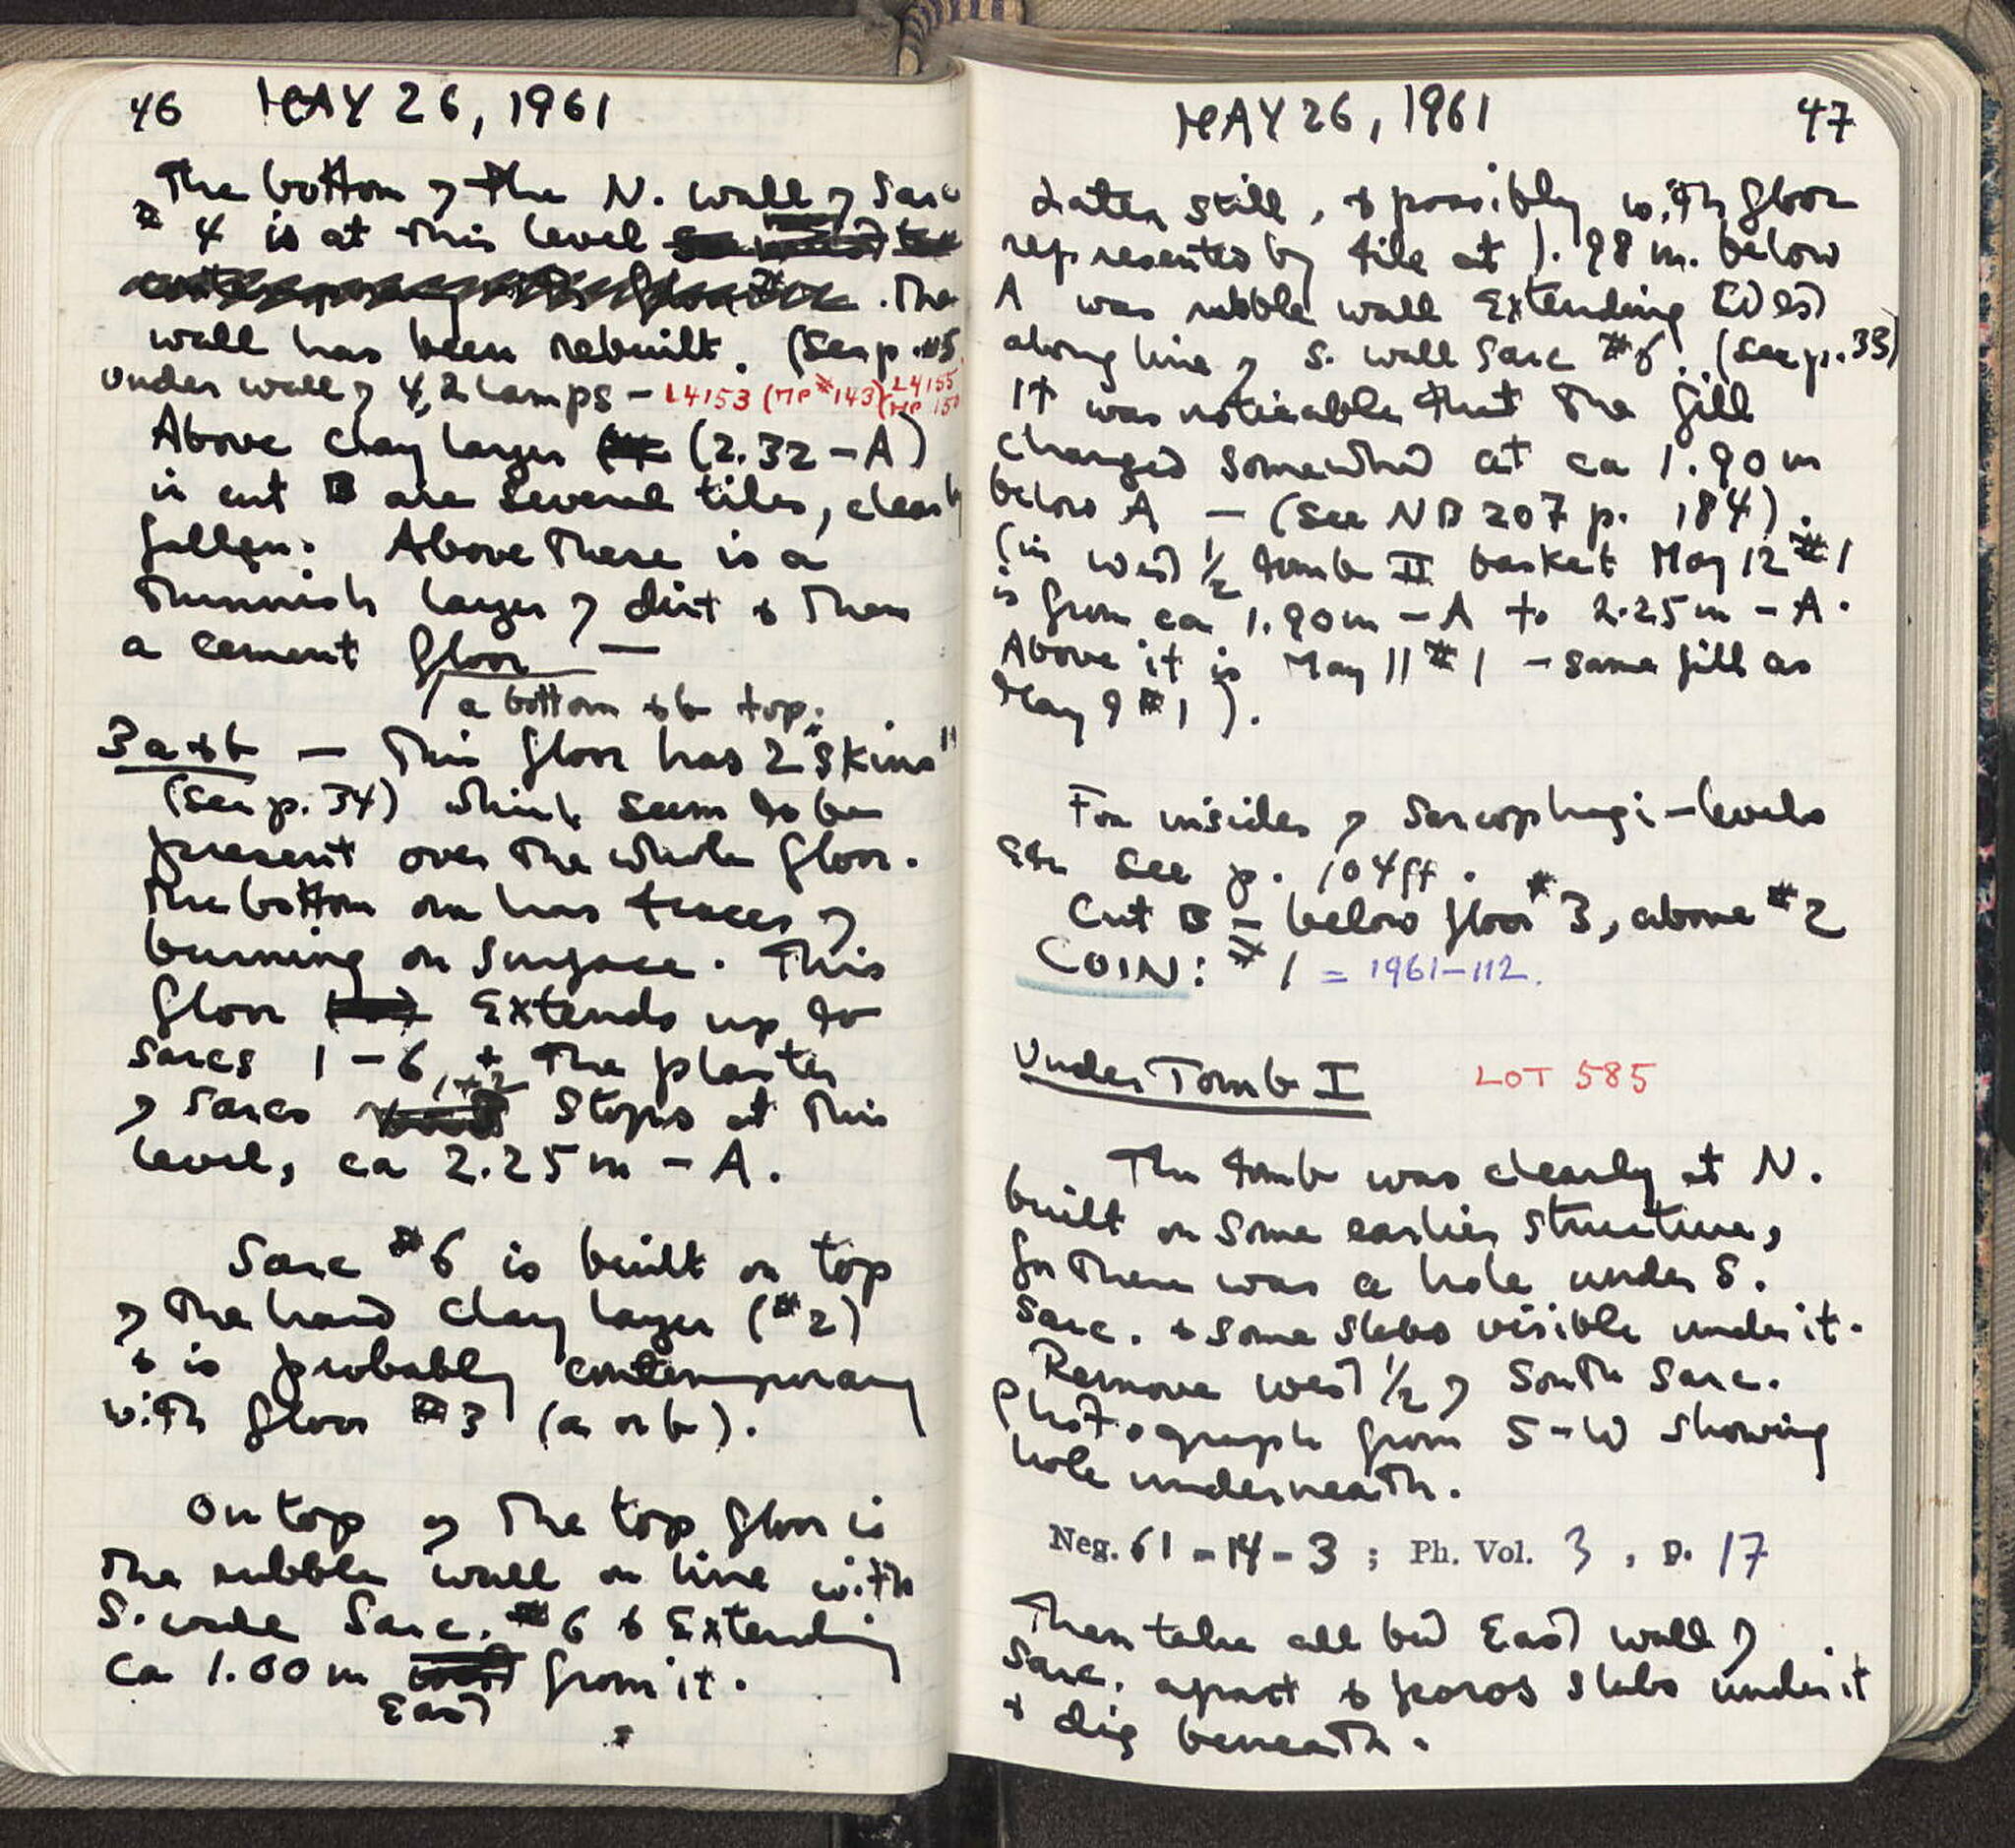 46 MAY 26, 1961
The bottom of the N. wall of Sarc
# 4 is at this level
. The
wall has been rebuilt. (See p. 45.
Under wall of 4, 2 lamps – L4153 (MP #143) (L4155
MP 150
Above clay layer (2.32 – A)
in cut B are several tiles, clearly
fallen. Above these is a
thinnish layer of dirt & then
a cement floor —
a bottom & b top.
3 a & b — This floor has 2 "skins"
(see p. 34) which seem to be
present over the whole floor.
The bottom one has traces of
burning on surface. This
floor extends up to
sarcs 1 – 6, + the plaster
of sarcs 1+2 stops at this
level, ca 2.25 m – A.
Sarc #6 is built on top
of the hard clay layer (#2)
& is probably contemporary
with floor #3 (a or b).
On top of the top floor is
the rubble wall on line with
S. wall Sarc. #6 & extending
ca 1.00 m from it.
East
MAY 26, 1961 47
Later still, & possibly with floor
represented by tile at 1.98 m. below
A was rubble wall extending West
along line of S. wall Sarc #6. (see p. 33)
It was noticeable that the fill
changed somewhat at ca 1.90 m
below A – (see NB 207 p. 184).
(in west 1/2 tomb II basket May 12 #1
is from ca 1.90 m – A to 2.25 m – A.
Above it is May 11 #1 – same fill as
May 9 #1).
For insides of sarcophagi – levels
see p. 104ff.
Cut B – below floor #3, above #2
COIN: #1 = 1961–112.
Under Tomb I LOT 585
The tomb was clearly at N.
built on some earlier structure,
for there was a hole under S.
sarc. & some slabs visible under it.
Remove west 1/2 of South Sarc.
Photograph from S–W showing
hole underneath.
Neg. 61 – 14 – 3 ; Ph. Vol. 3 , p. 17
Then take all but East wall of
Sarc. apart & poros slabs under it
& dig beneath.